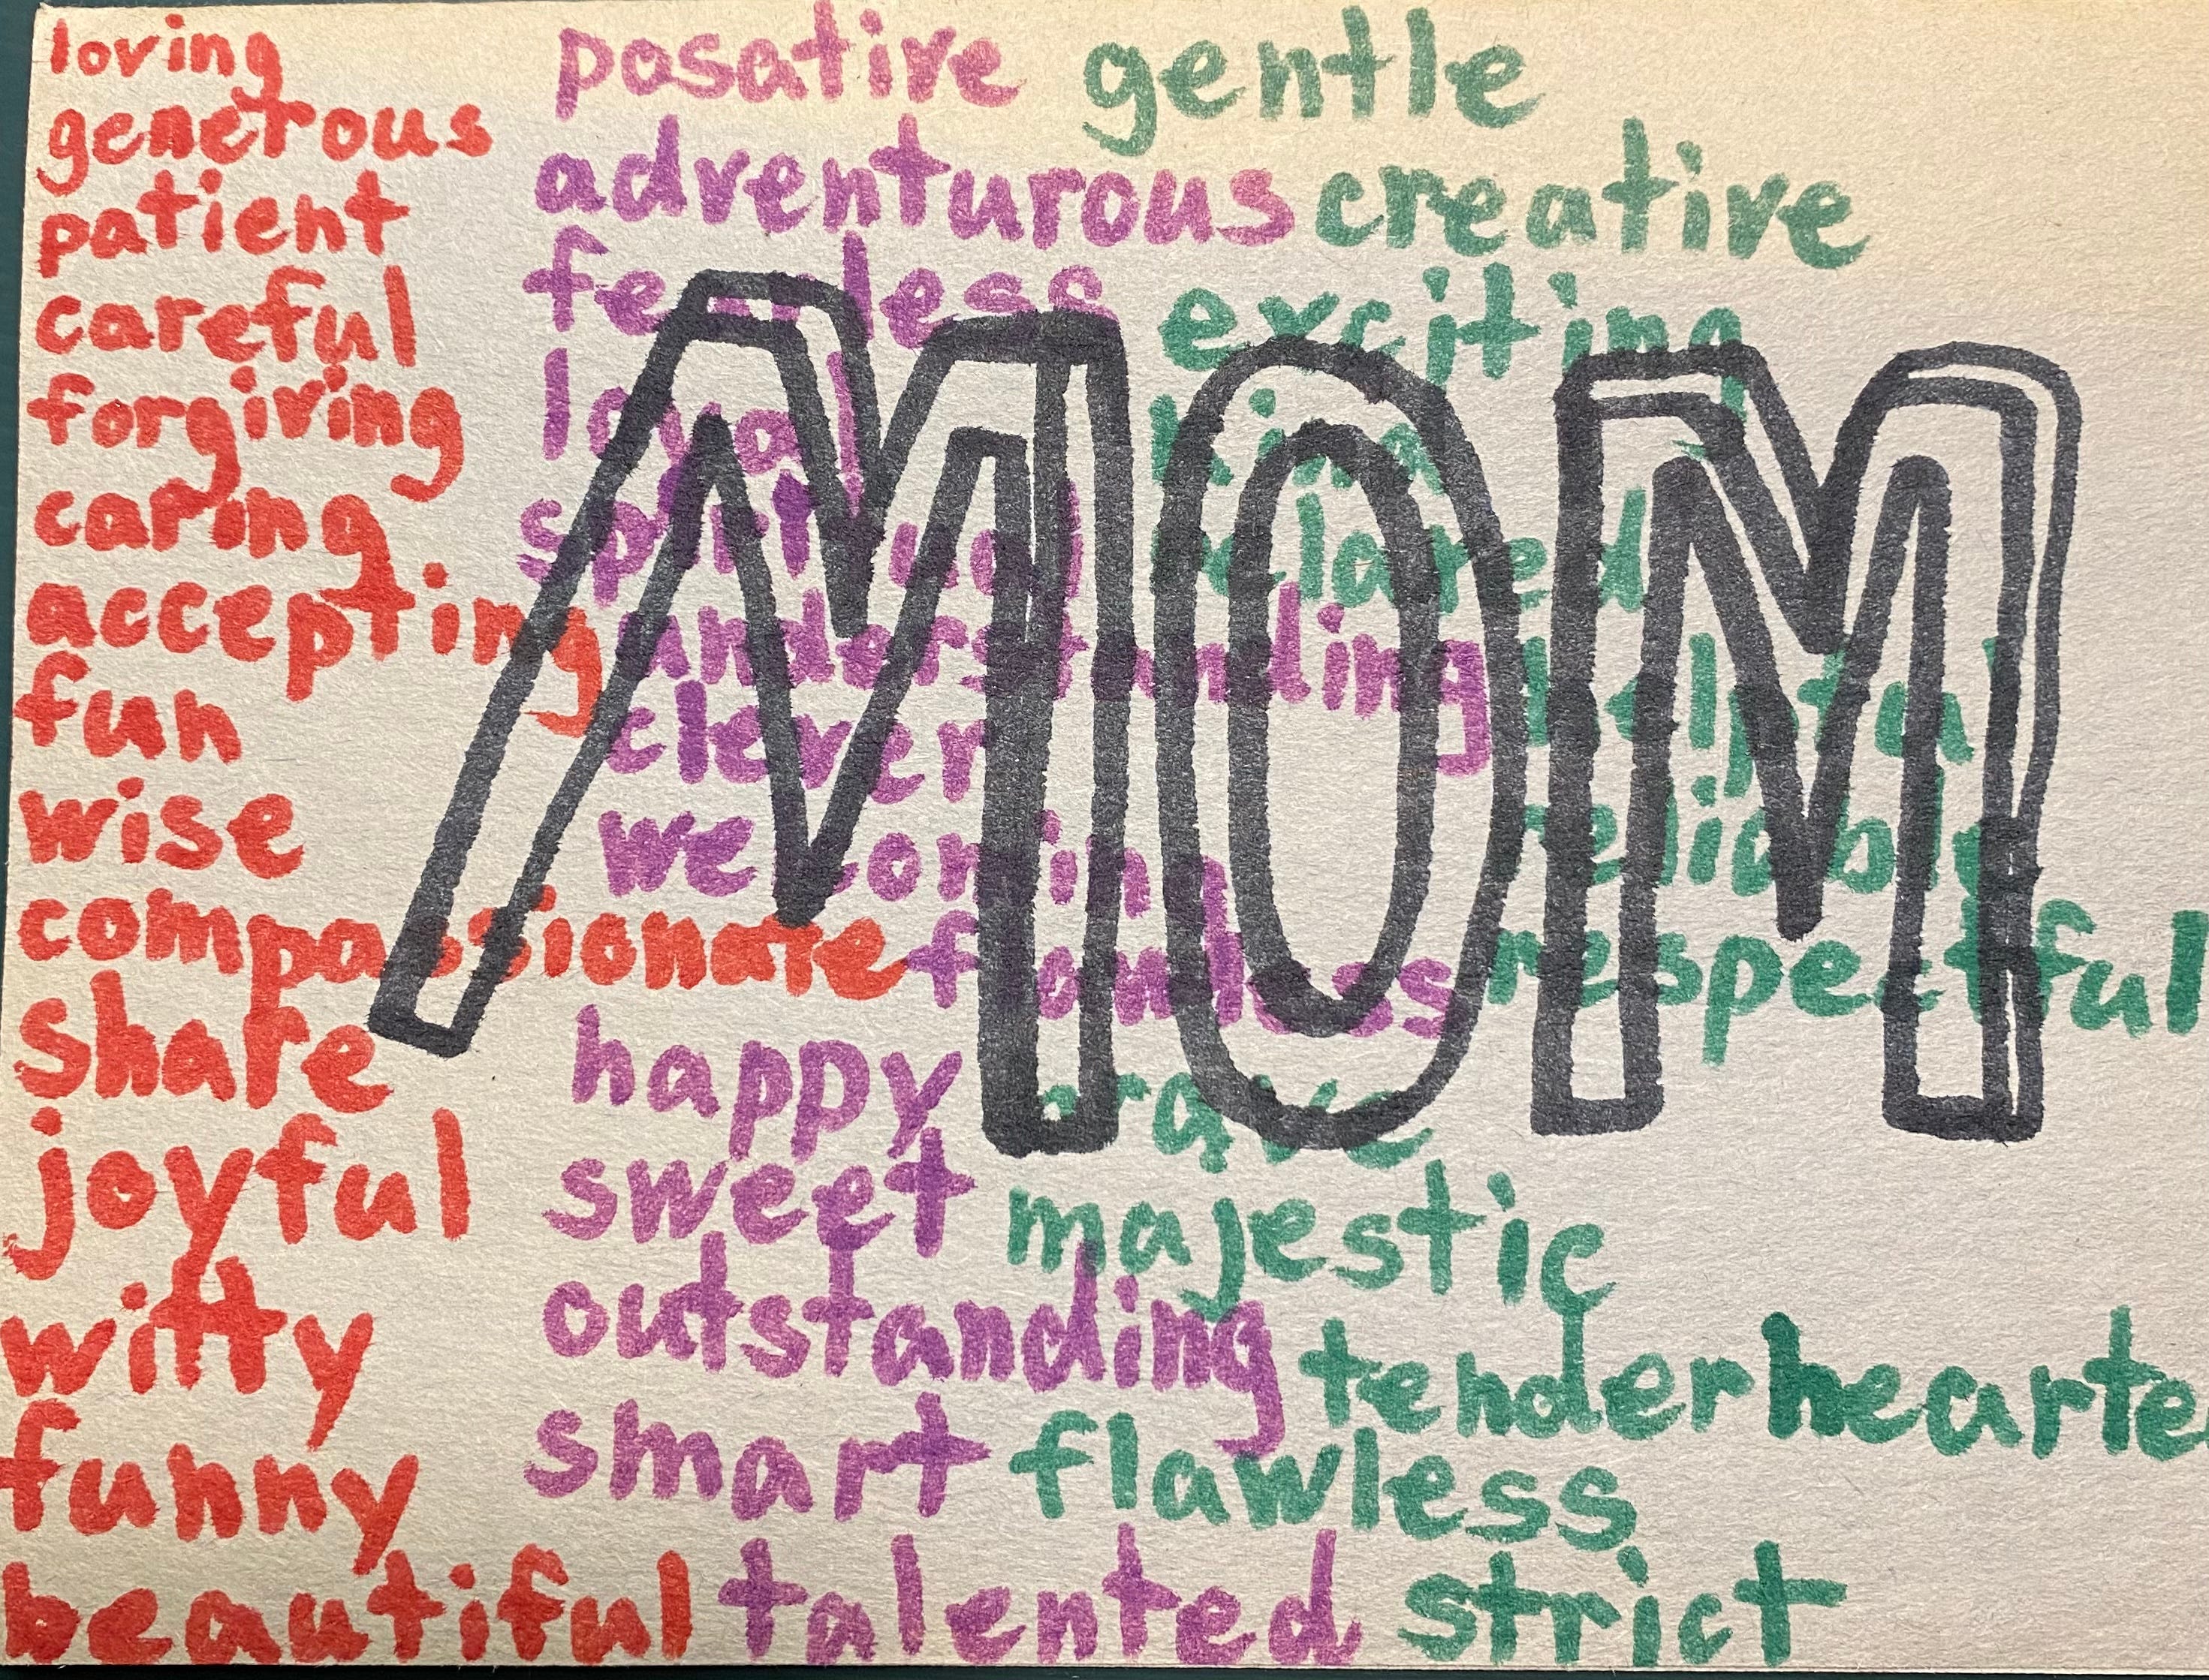 loving posative gentle
generous adventurous creative
patient fearless exciting
careful loyal kind
forgiving spiritual relaxed
caring understanding helpful
accepting clever reliable
fun welcoming respectful
wise
compassionate
share happy brave
joyful sweet majestic
witty outstanding tenderhearte
funny smart flawless
beautiful talented strict
MOM